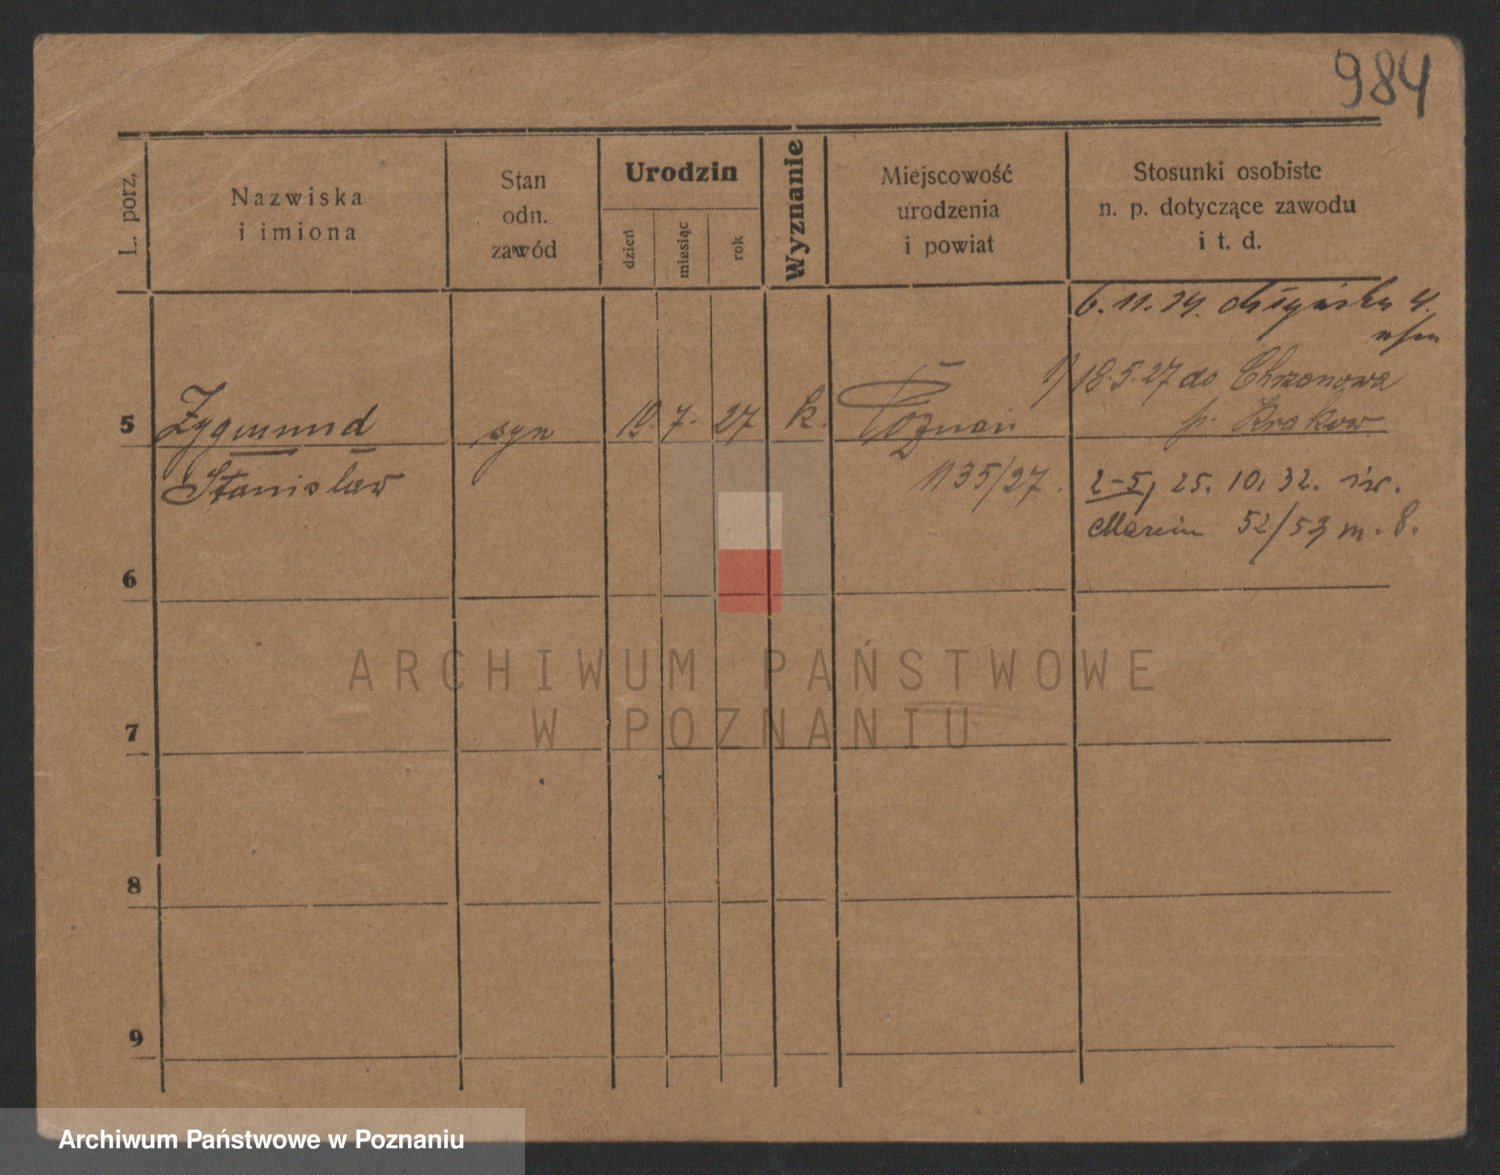 984
L. porz.
Nazwiska
i imiona
Stan
odn.
zawód
Urodzin
dzień
miesiąc
rok
Wyznanie
Miejscowość
urodzenia
i powiat
Stosunki osobiste
n. p. dotyczące zawodu
i t. d.
6. 11. 24.
1/ 18.5.27 do Chrzanowa
p. Krakow
5 Zygmund syn 19. 7. 27 k. Poznań
Stanislaw
1135/27.
2-5, 25. 10. 32. św.
Marcin 52/53 m. 8.
6
7
8
9
ARCHIWUM PAŃSTWOWE
W POZNANIU
Archiwum Państwowe w Poznaniu